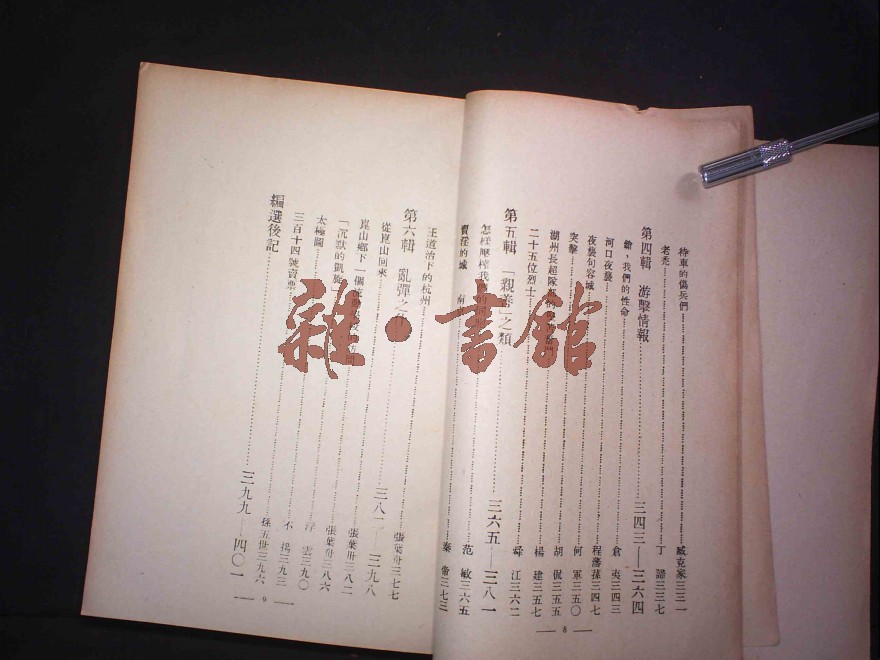 待車的傷兵們 臧克家 三三一
老禿 丁諦 三三七
第四輯 游擊情報 三四三——三六四
鎗,我們的性命 倉夷 三四三
河口夜襲 程藩蓀 三四七
夜襲句容城 何軍 三五〇
突擊 胡侃 三五五
湖州長超隊 楊建 三五七
二十五位烈士 舜江 三六二
第五輯 「親善」之類 三六五——三八一
怎樣壓榨我 范敏 三六五
賣淫的城 秦帝 三七三
— 8 —
王道治下的杭州 張葉舟 三七七
第六輯 亂彈之 三八二——三九八
從崑山回來 張葉舟 三八二
崑山鄉下一個 張葉舟 三八六
「沉默的凱旋 雲 三九〇
太極圖 不揚 三九三
三百十四號賣票 孫五世 三九六
編選後記 三九九——四〇一
— 9 —
雜·書館